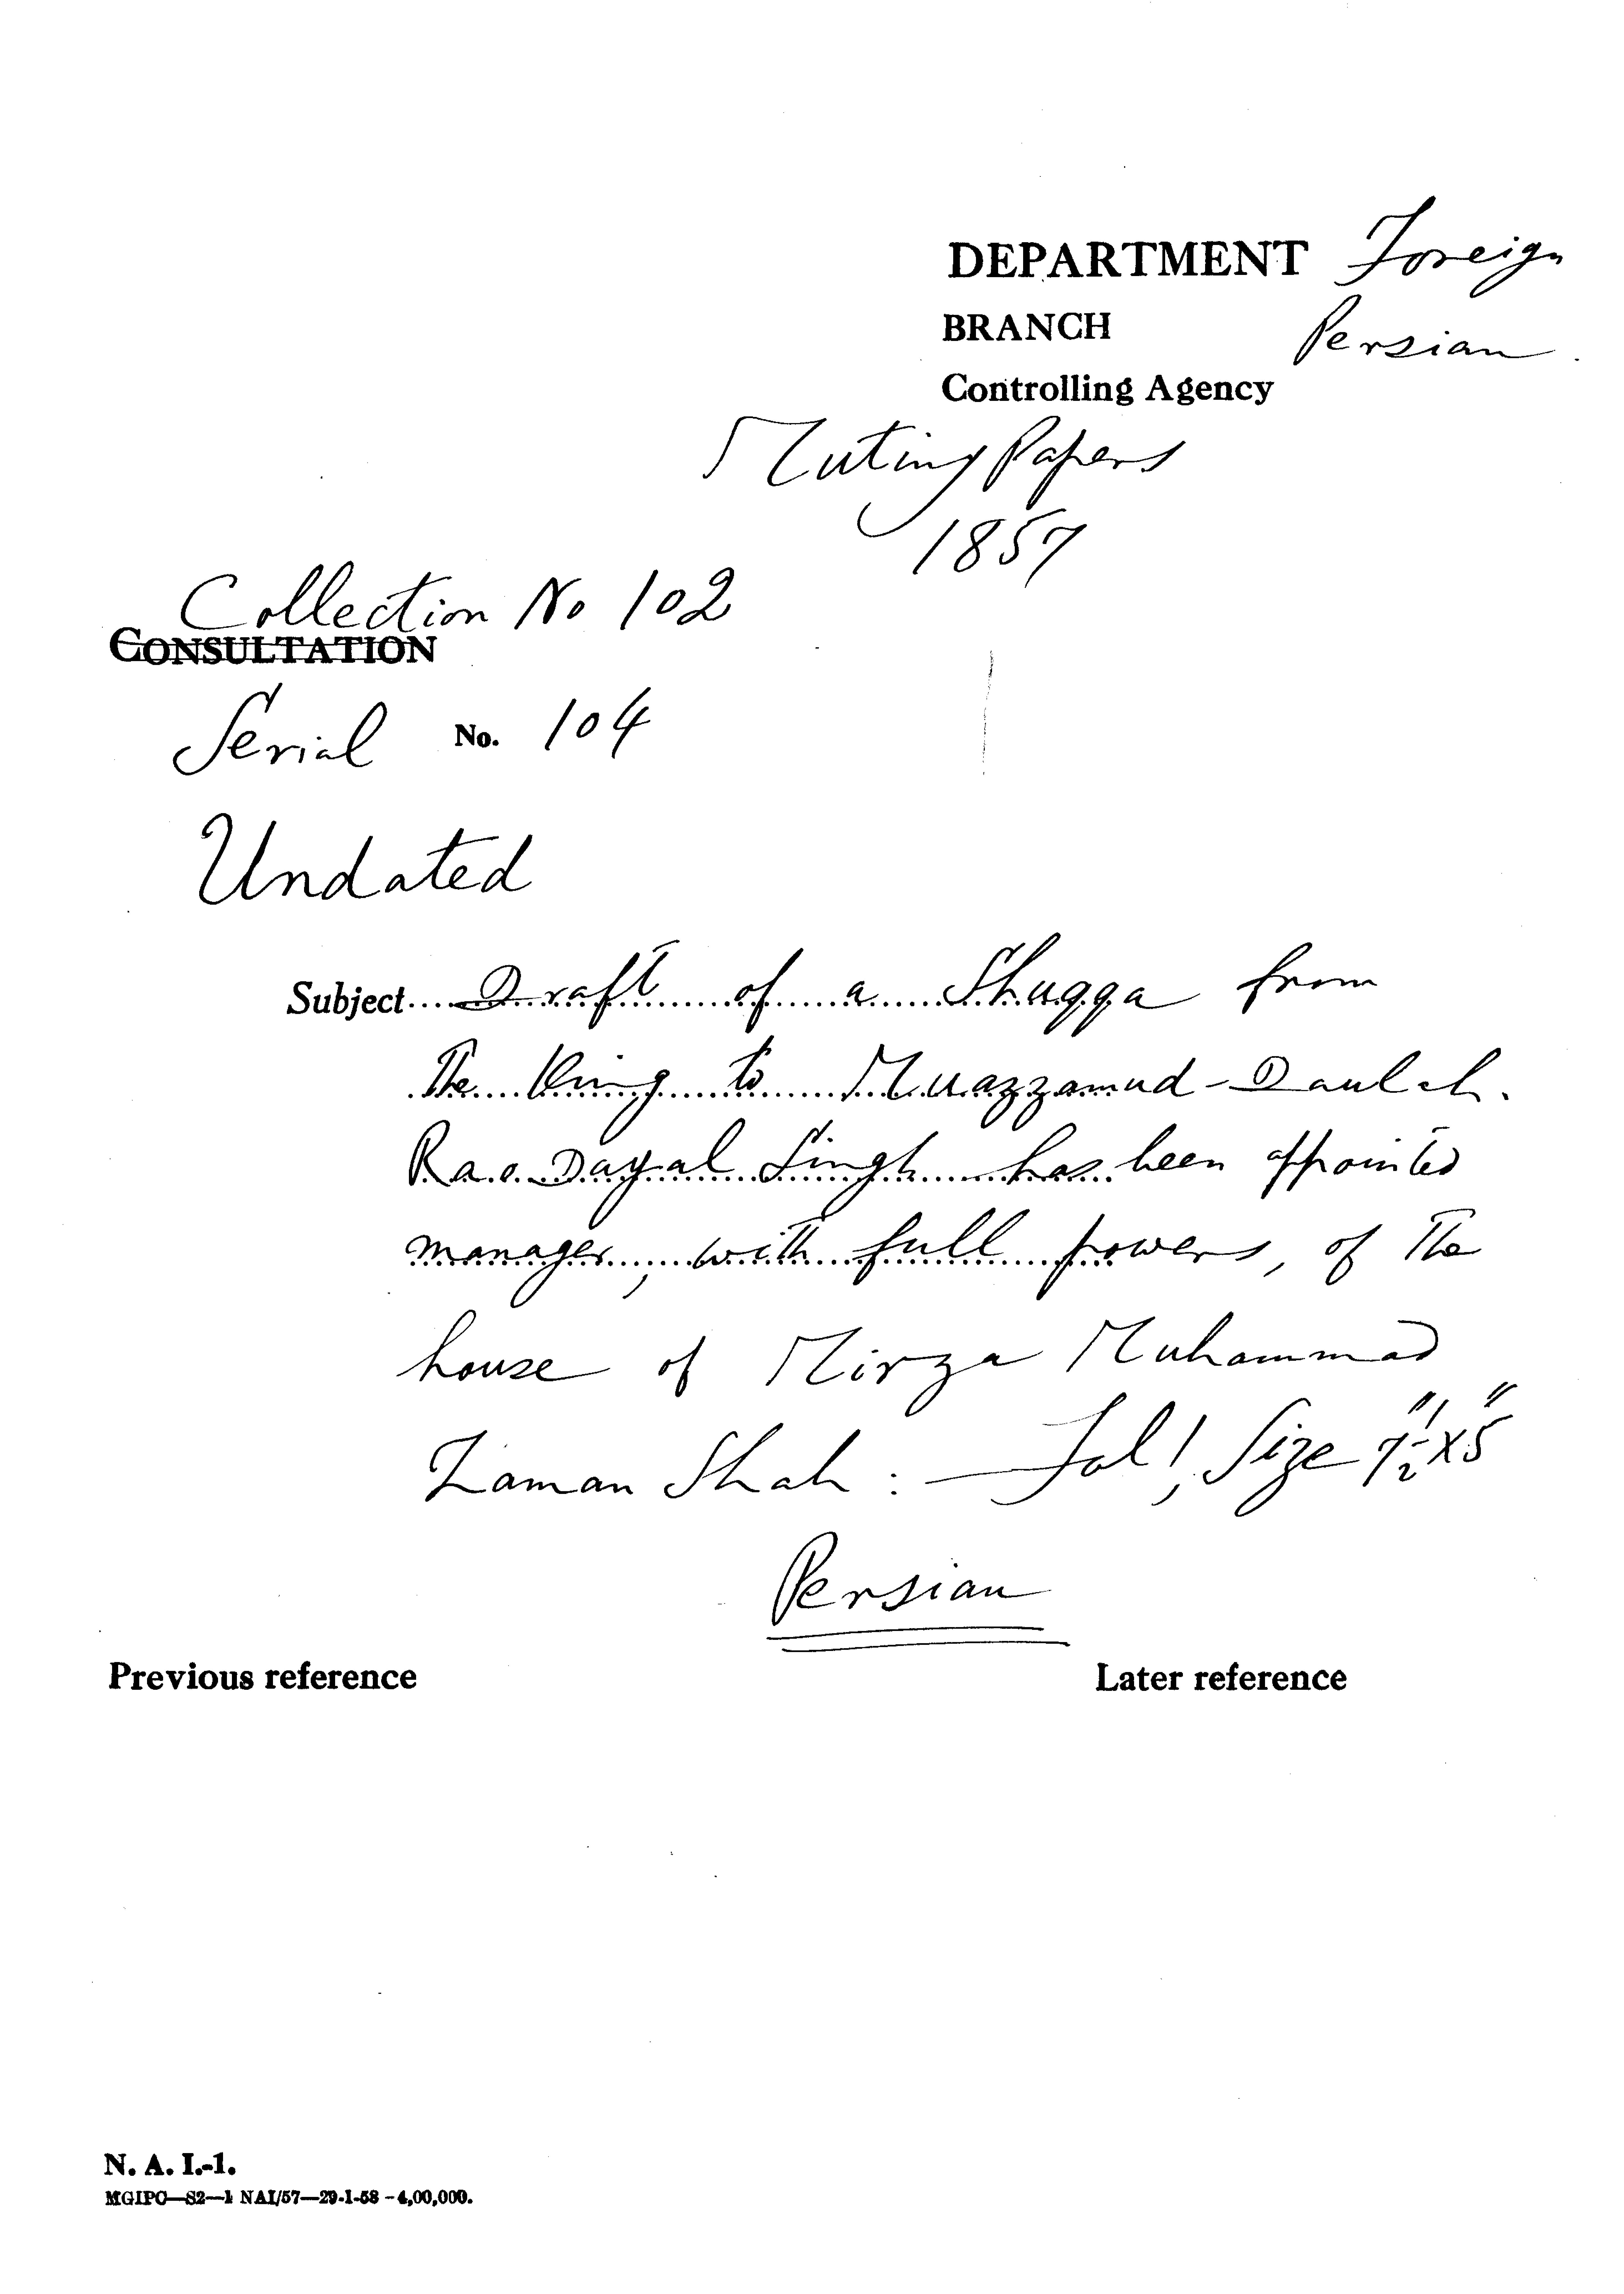 DEPARTMENT Foreign
BRANCH Persian
Controlling Agency
Mutiny Papers
1857
Collection No 102
CONSULTATION
Serial No. 104
Undated
Subject.... Draft of a Shuqqa from
The King to Muazzamud-Daulah.
Rao Dayal Singh has been appointed
manager, with full powers, of The
house of Mirza Muhammad
Zaman Shah : — Fol 1, Size 7½" x 5"
Persian
Previous reference Later reference
N. A. I.-1.
MGIPC—S2—1 NAI/57—29-1-58 -4,00,000.